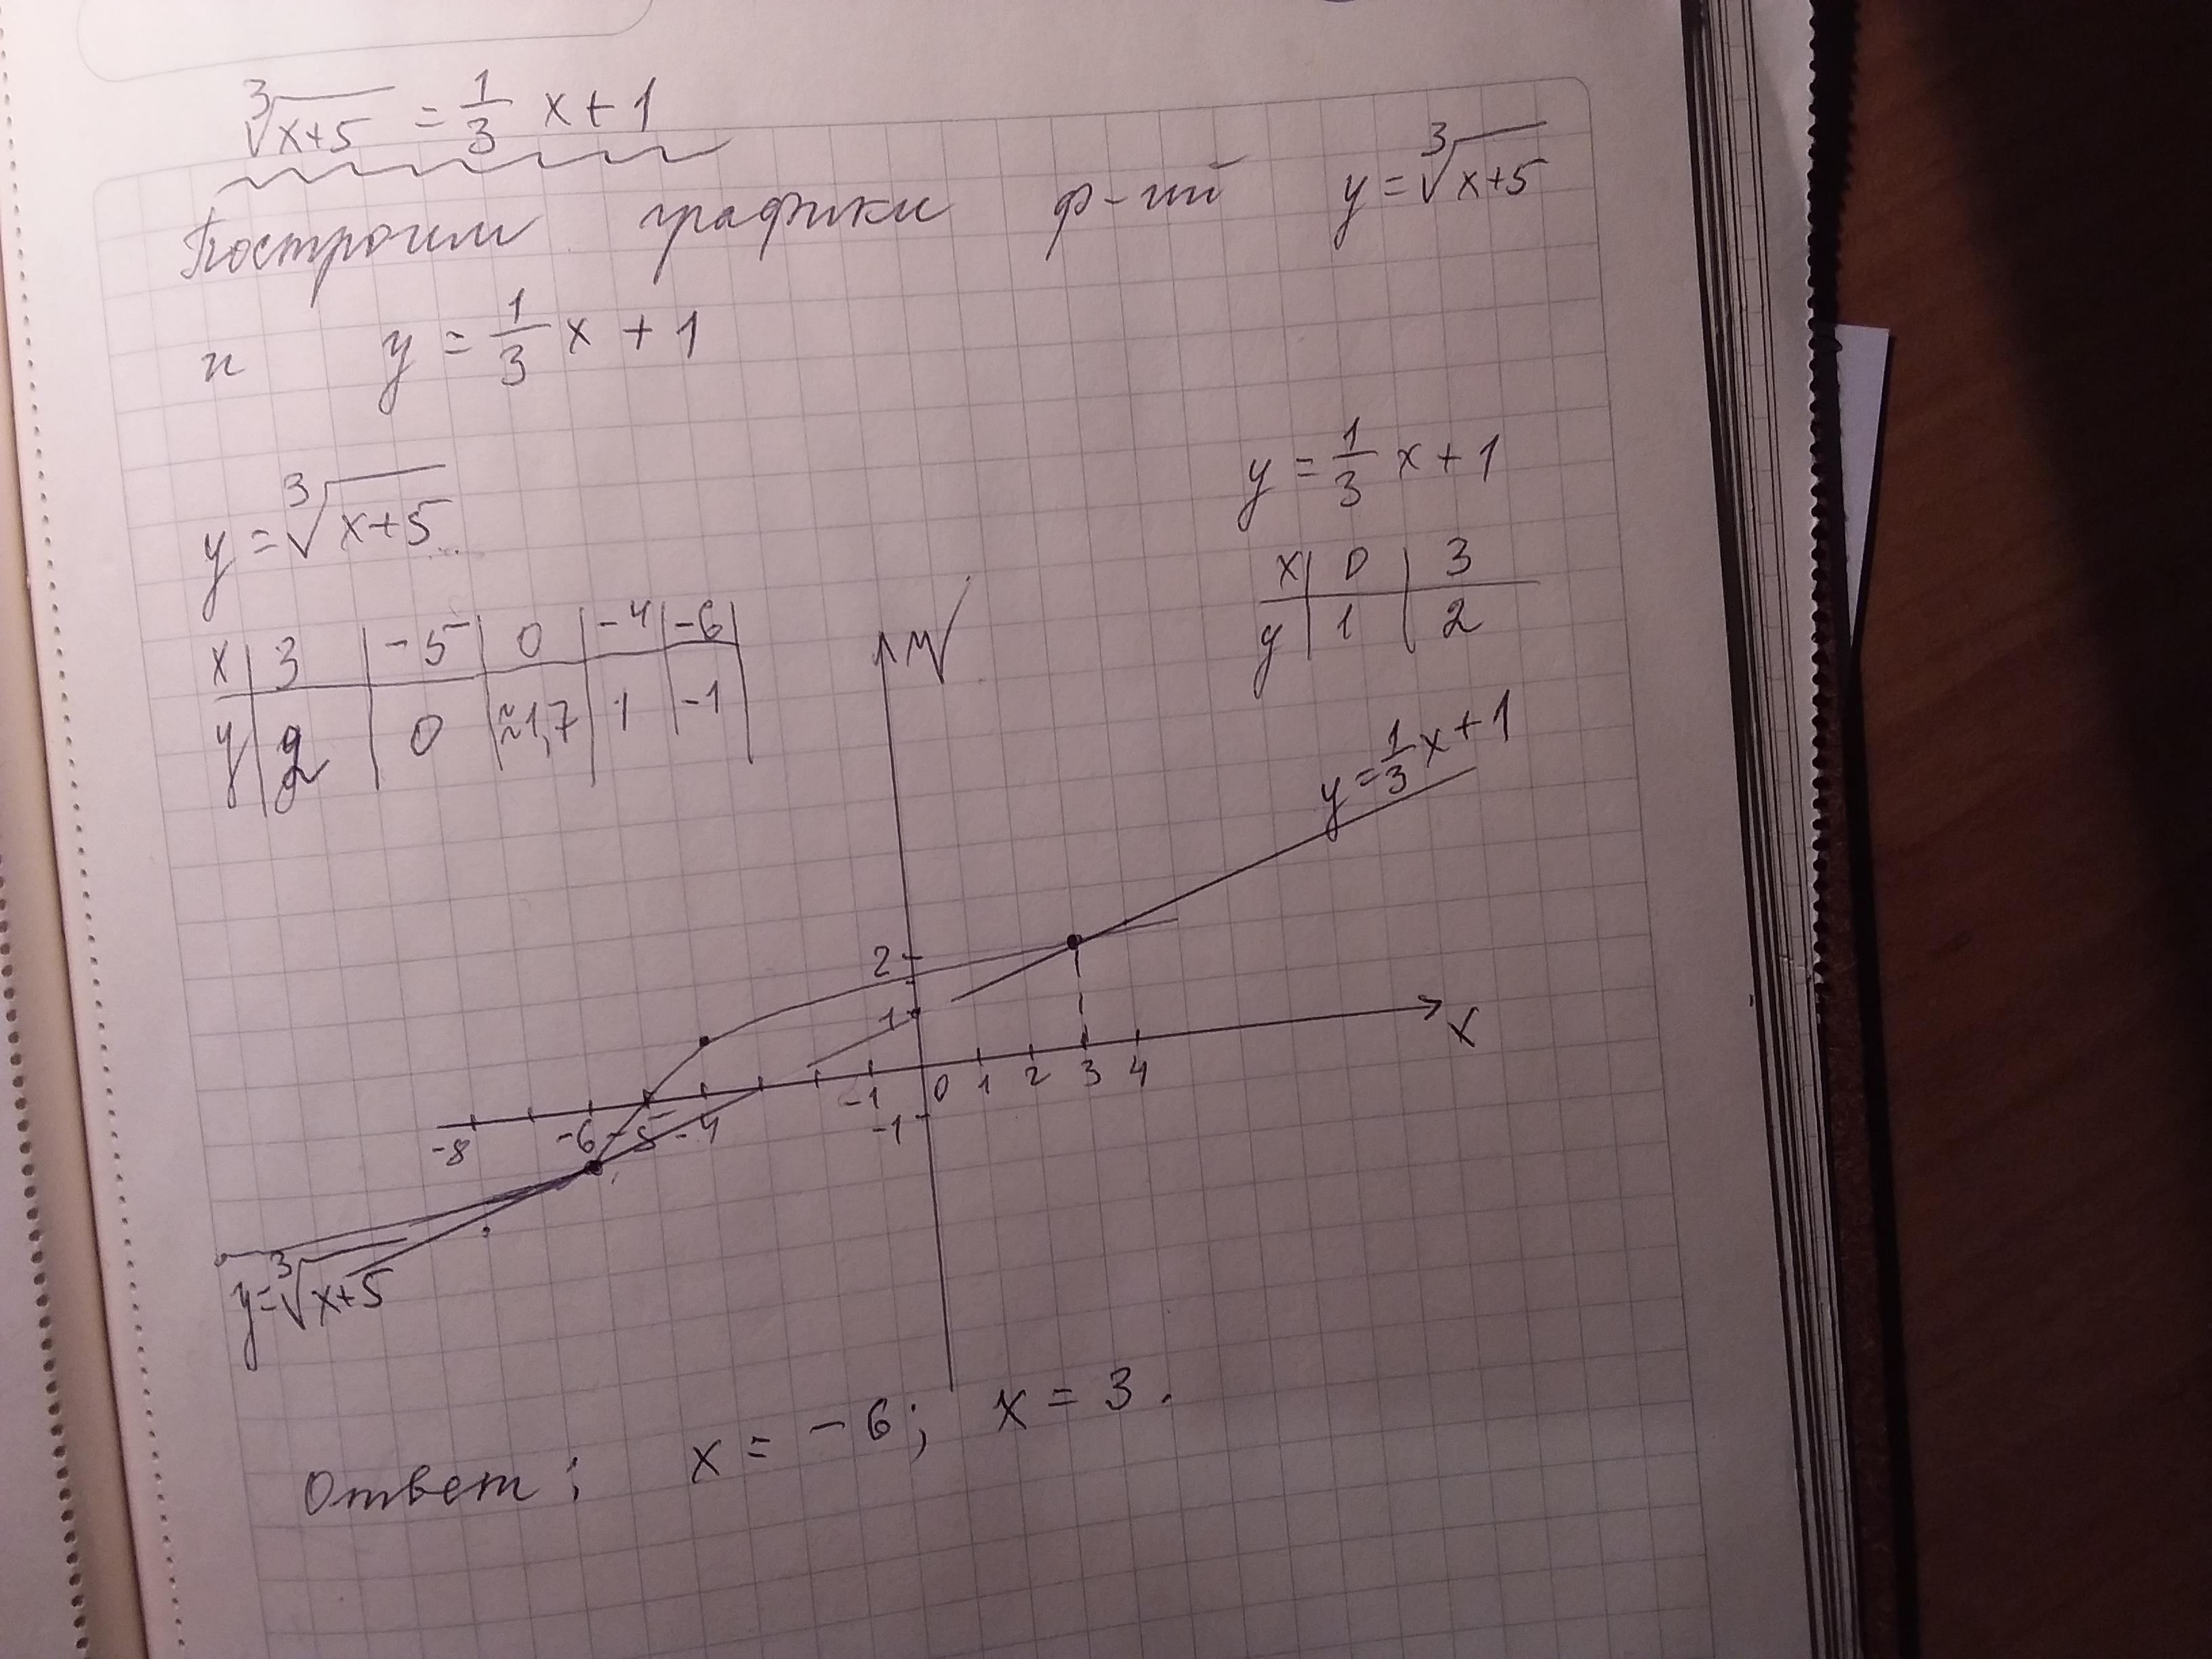 ∛(x+5) = 1/3 x + 1
Построим графики ф-ий y = ∛(x+5)
и y = 1/3 x + 1
y = ∛(x+5)
y = 1/3 x + 1
x | 3 | -5 | 0 | -4 | -6 |
y | 2 | 0 | ≈1,7 | 1 | -1 |
x | 0 | 3
y | 1 | 2
y
y = 1/3 x + 1
2
1
x
-8 -6 -5 -4 -1 0 1 2 3 4
-1
y = ∛(x+5)
Ответ: x = -6; x = 3.